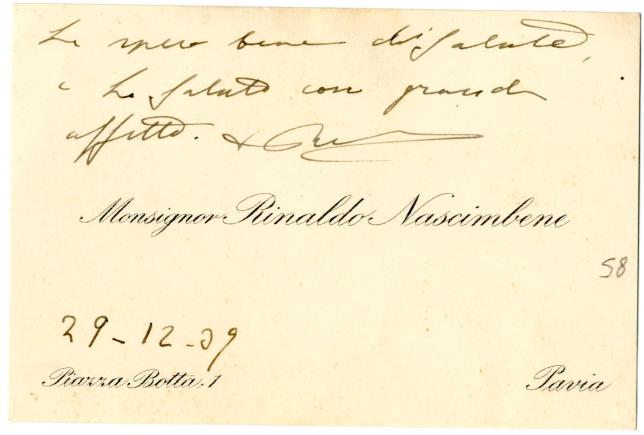 La spero bene di salute,
e La saluto con grande
affetto.
Monsignor Rinaldo Nascimbene
58
29-12-39
Piazza Botta, 1
Pavia